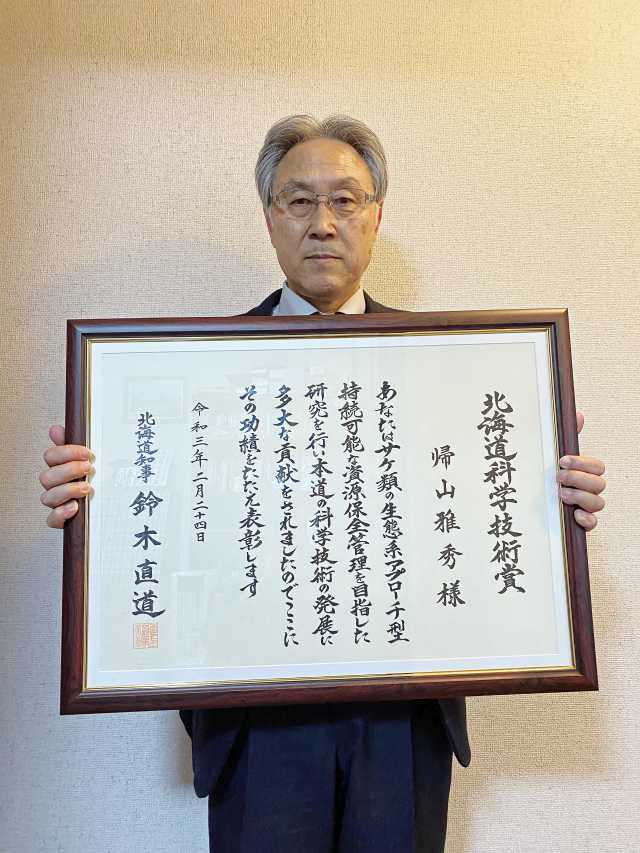 北海道科学技術賞
帰山雅秀様
あなたはサケ類の生態系アプローチ型
持続可能な資源保全管理を目指した
研究を行い本道の科学技術の発展に
多大な貢献をされましたのでここに
その功績をたたえ表彰します
令和三年二月二十四日
北海道知事 鈴木直道